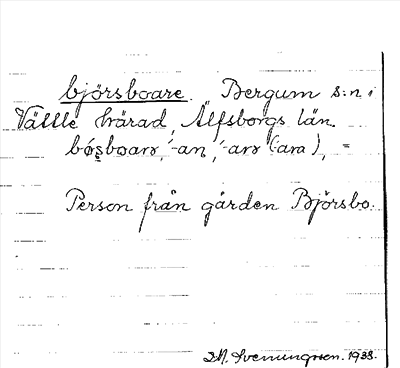 björsboare. Bergum s:n i
Vättle härad, Älfsborgs län.
bøsboarɘ -an, -arɘ (-ara), =
Person från gården Björsbo.
M. Svenungsson. 1933.